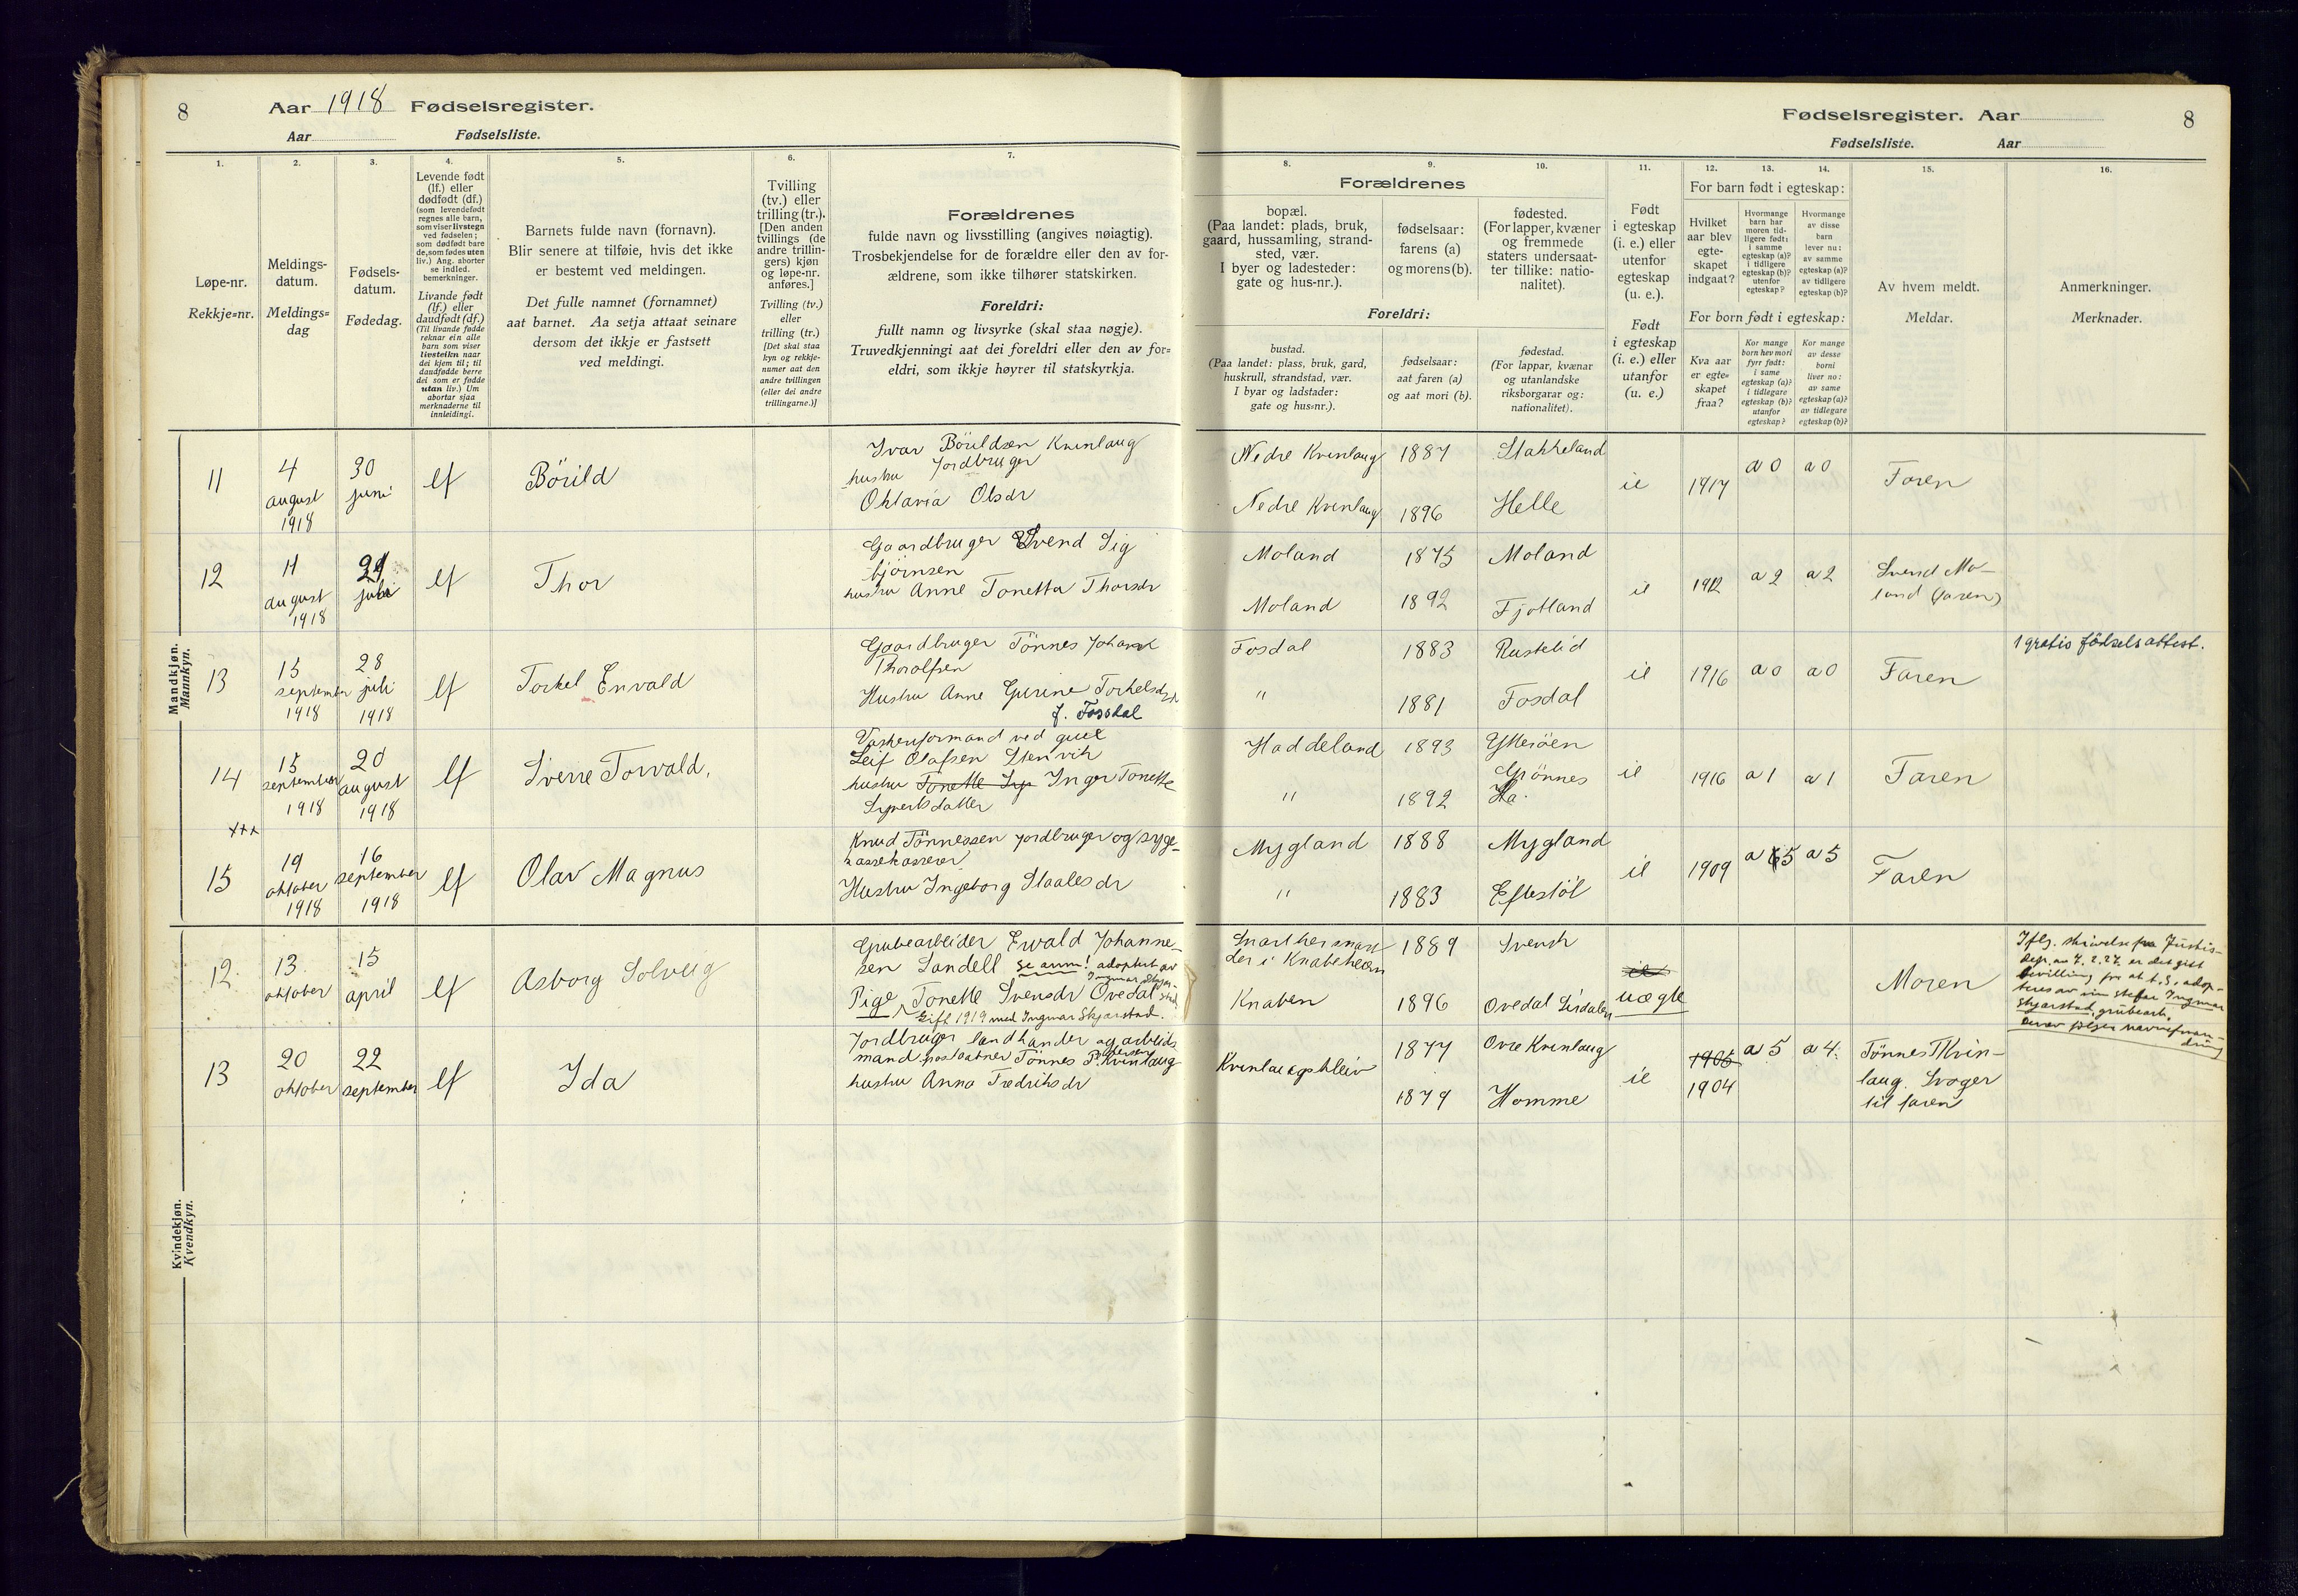 8
Aar 1918 Fødselsregister.
Aar Fødselsliste.
Fødselsregister. Aar
8
Fødselsliste. Aar
1.
2.
3.
4.
5.
6.
7.
8.
9.
10.
11.
12.
13.
14.
15.
16.
Løpe-nr.
Rekkje=nr.
Meldings-
datum.
Meldings=
dag
Fødsels-
datum.
Fødedag.
Levende født
(lf.) eller
dødfødt (df.)
(som levendefødt
regnes alle barn,
som viser livstegn
ved fødselen;
som dødfødt bare
de, som fødes uten
liv.) Ang. aborter
se indled.
bemerkninger.
Livande født
(lf.) eller
daudfødt (df.)
(Til livande fødde
reknar ein alle
barn som viser
livsteikn naar
dei kjem til; til
daudfødde berre
dei som er fødde
utan liv.) Um
abortar sjaa
merknaderne til
innleidingi.
Barnets fulde navn (fornavn).
Blir senere at tilføie, hvis det ikke
er bestemt ved meldingen.
Det fulle namnet (fornamnet)
aat barnet. Aa setja attaat seinare
dersom det ikkje er fastsett
ved meldingi.
Tvilling
(tv.) eller
trilling (tr.).
[Den anden
tvillings (de
andre trillin-
gers) kjøn
og løpe-nr.
anføres.]
Tvilling (tv.)
eller
trilling (tr.)
[Det skal staa
kyn og rekkje-
numer aat den
andre tvillingen
(eller dei andre
trillingarne.)]
Forældrenes
fulde navn og livsstilling (angives nøiagtig).
Trosbekjendelse for de forældre eller den av for-
ældrene, som ikke tilhører statskirken.
Foreldri:
fullt namn og livsyrke (skal staa nøgje).
Truvedkjenningi aat dei foreldri eller den av for=
eldri, som ikkje høyrer til statskyrkja.
Forældrenes
bopæl.
(Paa landet: plads, bruk,
gaard, hussamling, strand-
sted, vær.
I byer og ladesteder:
gate og hus-nr.).
fødselsaar:
farens (a)
og morens (b).
fødested.
(For lapper, kvæner
og fremmede
staters undersaat-
ter tillike: natio-
nalitet).
Foreldri:
bustad.
(Paa landet: plass, bruk, gard,
huskrull, strandstad, vær.
I byar og ladstader:
gate og hus=nr.).
fødselsaar:
aat faren (a)
og aat mori (b).
fødestad.
(For lappar, kvænar
og utanlandske
riksborgarar og:
nationalitet).
Født
i egteskap
(i. e.) eller
utenfor
egteskap
(u. e.).
Født
i egteskap
(i. e.) eller
utanfor
(u. e.)
For barn født i egteskap:
Hvilket
aar blev
egte-
skapet
indgaat?
Hvormange
barn har
moren tid-
ligere født:
i samme
egteskap (a)?
i tidligere
egteskap (b)?
utenfor
egteskap?
Hvormange
av disse
barn
lever nu:
av samme
egteskap (a)?
av tidligere
egteskap (b)?
For born født i egteskap:
Kva aar
er egte=
skapet
fraa?
Kor mange
born hev mori
fyrr født:
i same
egteskap (a)?
i tidlegare
egteskap (b)?
utanfor
egteskap?
Kor mange
av desse
borni
liver no:
av same
egteskap (a)?
av tidlegare
egteskap (b)?
Av hvem meldt.
Meldar.
Anmerkninger.
Merknader.
Mandkjøn.
Mannkyn.
11
4 august 1918
30 juni
lf
Börild
Ivar Börildsen Kvinlaug
Jordbruger
hustru
Oktavia Olsdr
Nedre Kvinlaug 1887 Stakkeland
Nedre Kvinlaug 1896 Helle
ie 1917 a 0 a 0 Faren
12
11 august 1918
juli
lf
Thor
Gaardbruger Svend Sig
björnsen
hustru Anne Tonetta Thorsdr
Moland 1875 Moland
Moland 1892 Fjotland
ie 1912 a 2 a 2
Svend Mo-
land (faren)
13
15 september 1918
28 juli 1918
lf
Torkel Envald
Gaardbruger Tönnes Johan
Thorolfsen
Hustru Anne Gurine Torkelsdr
f. Fossdal
Fosdal 1883 Rustelid
" 1881 Fosdal
ie 1916 a 0 a 0 Faren
1 gratis födselsattest.
14
15 september 1918
20 august 1918
lf
Sverre Torvald.
Vaskeriformand ved
Leif Olafsen Stenvik
hustru Tonette Inger Tonette
Sigvertsdatter
Haddeland 1893 Ytterøen
Grönnes
" 1892
ie 1916 a 1 a 1 Faren
+++
15
19 oktober 1918
16 september 1918
lf
Olav Magnus
Knud Tönnessen Jordbruger og syge-
kassekasserer
Hustru Ingeborg Staalesdr
Mygland 1888 Mygland
" 1883 Eftestöl
ie 1909 a 5 a 5 Faren
Kvindekjøn.
Kvendkyn.
12.
13 oktober
15 april
lf
Asborg Solveig
Grubearbeider Ewald Johanne-
sen Sandell se anm! adoptert av
Ingmar Skjar-
stad
Pige Tonette Svensdr Ovedal
Gift 1919 med Ingmar Skjarstad.
1889 Svensk
Knaben 1896 Ovedal Sirdalen
ie
uægte
Moren
Iflg. skrivelse fra Justis-
dep. av 7.2.27. er det gitt
bevilling for at b. S. adop-
teres av sin stefar Ingmar
Skjarstad, grubearb.
Derav følger navneforan-
dring
13
20 oktober
22 september
lf
Ida
Jordbruger landhandler og arbeids
mand postaabner Tönnes P. Kvinlaug
hustru Anna Fredriksdr
Kvinlaugskleiv 1877 Ovre Kvinlaug
1879 Homme
ie 1905
1904
a 5 a 4.
Tönnes T Kvin-
laug. Svoger
til faren